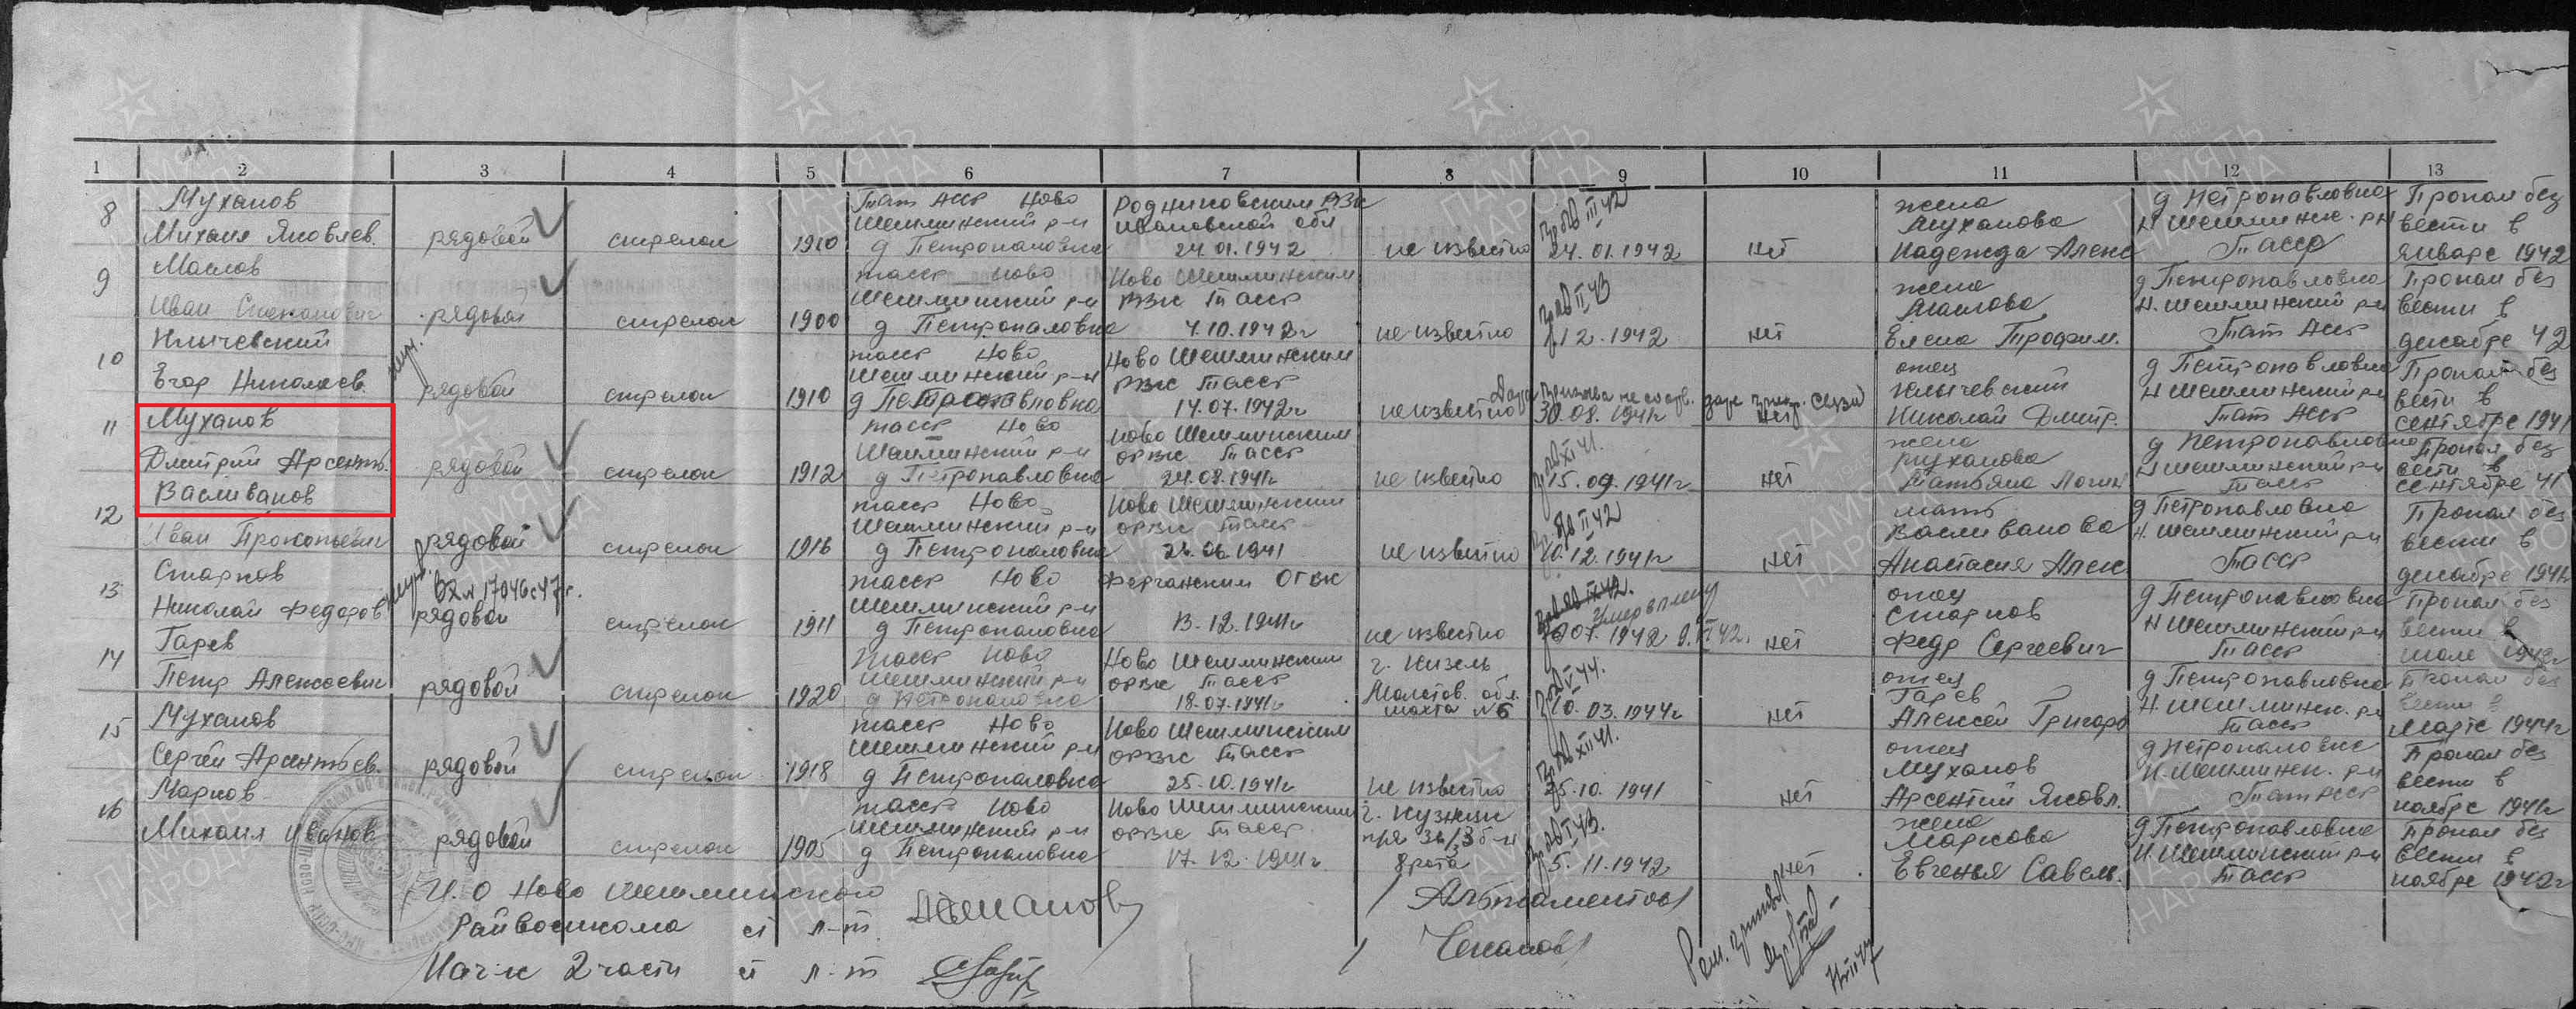 1 2 3 4 5 6 7 8 9 10 11 12 13
8 Муханов Михаил Яковлев. рядовой стрелок 1910 Тат АССР Ново Шешминский р-н д Петропаловка Родниковским РВК Ивановской обл 24.01.1942 не известно 24.01.1942 нет жена Муханова Надежда Алекс д Петропавловка Н Шешминск. р-н ТАССР Пропал без вести в январе 1942
9 Маслов Иван Степанович рядовой стрелок 1900 ТАССР Ново Шешминский р-н д Петропаловка Ново Шешминским РВК ТАССР 7.10.1942г не известно 12.1942 нет жена Маслова Елена Трофим. д Петропавловка Н. Шешминский р-н Тат АССР Пропал без вести в декабре 42
10 Клычевский Егор Николаев. рядовой стрелок 1910 ТАССР Ново Шешминский р-н д Петропавловка Ново Шешминским РВК ТАССР 14.07.1942г не известно 30.08.1941г нет отец Клычевский Николай Дмитр. д Петропавловка Н Шешминский р-н Тат АССР Пропал без вести в сентябре 1941
11 Муханов Дмитрий Арсенть. рядовой стрелок 1912 ТАССР Ново Шешминский р-н д Петропавловка Ново Шешминским ОРВК ТАССР 24.08.1941г не известно 15.09.1941г нет жена Муханова Татьяна Логин д Петропавловка Н Шешминский р-н ТАССР Пропал без вести в сентябре 41
12 Васливанов Иван Прокопьевич рядовой стрелок 1916 ТАССР Ново Шешминский р-н д Петропаловка Ново Шешминским ОРВК ТАССР 24.06.1941 не известно 10.12.1941г нет мать Васливанова Анастасия Алек д Петропавловка Н. Шешминский р-н ТАССР Пропал без вести в декабре 1941
13 Старков Николай Федоров Вх.н 17046с47г. рядовой стрелок 1911 ТАССР Ново Шешминский р-н д Петропаловка Ферганским ОГВК 13.12.1941г не известно 07.1942 нет отец Старков Федр Сергеевич д Петропавловка Н Шешминский р-н ТАССР Пропал без вести в июле 1942г
14 Гарев Петр Алексеевич рядовой стрелок 1920 ТАССР Ново Шешминский р-н д Петропаловка Ново Шешминским ОРВК ТАССР 18.07.1941г г. Кизель Молотов. обл. шахта №6 10.03.1944г нет отец Гарев Алексей Григоро д Петропавловка Н. Шешминск. р-н ТАССР Пропал без вести в марте 1944г
15 Муханов Сергей Арсентьев. рядовой стрелок 1918 ТАССР Ново Шешминский р-н д Петропаловка Ново Шешминским ОРВК ТАССР 25.10.1941г не известно 25.10.1941 нет отец Муханов Арсентий Яковл. д Петропаловка Н. Шешминск. р-н Тат АССР Пропал без вести в ноябре 1941г
16 Марков Михаил Иванов рядовой стрелок 1905 ТАССР Ново Шешминский р-н д Петропаловка Ново Шешминским ОРВК ТАССР 17.12.1941г. г. Кузнецк 8 рота 5.11.1942 нет жена Маркова Евгенья Савель. д Петропавловка Н. Шешминский р-н ТАССР Пропал без вести в ноябре 1942г
И.О Ново Шешминского
Райвоенкома ст л-т
Нач-к 2 части ст л-т
ПАМЯТЬ НАРОДА